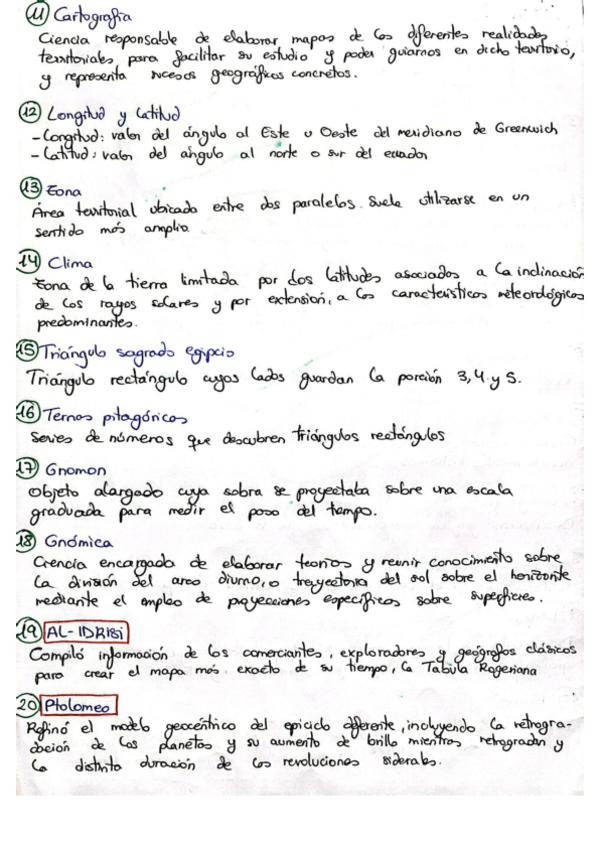 11 Cartografía
Ciencia responsable de elaborar mapas de los diferentes realidades
territoriales para facilitar su estudio y poder guiarnos en dicho territorio,
y representa sucesos geográficos concretos.
12 Longitud y Latitud
- Longitud: valor del ángulo al Este u Oeste del meridiano de Greenwich
- Latitud: valor del ángulo al norte o sur del ecuador
13 Zona
Área territorial ubicada entre dos paralelos. Suele utilizarse en un
sentido más amplio
14 Clima
Zona de la tierra limitada por dos latitudes asociados a la inclinación
de los rayos solares y por extensión, a los característicos meteorológicos
predominantes.
15 Triángulo sagrado egipcio
Triángulo rectángulo cuyos lados guardan la porción 3, 4 y 5.
16 Ternas pitagóricas
Series de números que descubren triángulos rectángulos
17 Gnomon
Objeto alargado cuya sobra se proyectaba sobre una escala
graduada para medir el paso del tiempo.
18 Gnómica
Ciencia encargada de elaborar teorías y reunir conocimiento sobre
la división del arco diurno, o trayectoria del sol sobre el horizonte
mediante el empleo de proyecciones específicas sobre superficies.
19 AL-IDRISI
Compiló información de los comerciantes, exploradores y geógrafos clásicos
para crear el mapa más exacto de su tiempo, la Tabula Rogeriana
20 Ptolomeo
Refinó el modelo geocéntrico del epiciclo diferente, incluyendo la retrogra-
dación de los planetas y su aumento de brillo mientras retrogradan y
la distinta duración de los revoluciones siderales.